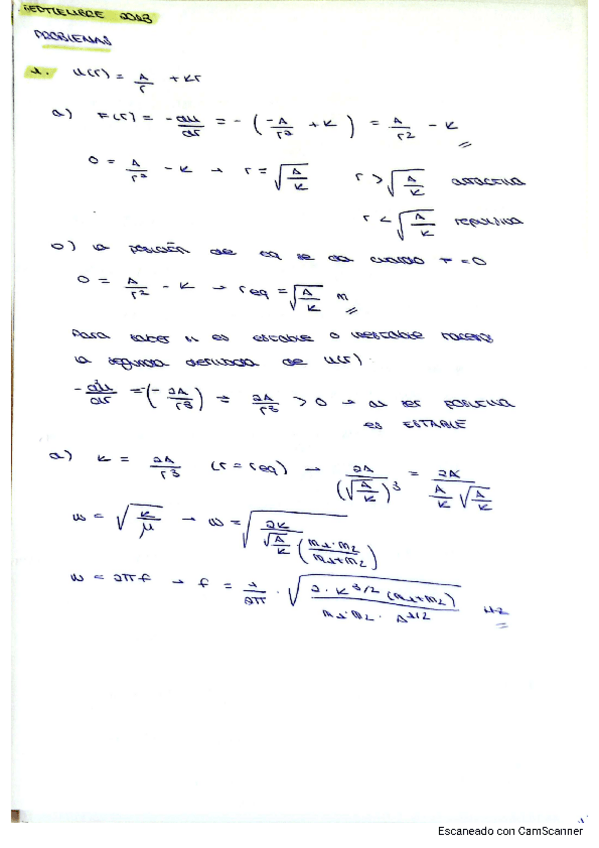 SEPTIEMBRE 2023
PROBLEMAS
1. U(r) = A/r + Kr
a) F(r) = -dU/dr = -(-A/r² + K) = A/r² - K
0 = A/r² - K → r = √(A/K)   r > √(A/K) atractiva
r < √(A/K) repulsiva
b) la posición de eq se da cuando F = 0
0 = A/r² - K → req = √(A/K) m
Para saber si es estable o inestable hacemos
la segunda derivada de U(r):
-dU/dr = (-2A/r³) = 2A/r³ > 0 → al ser positiva
es ESTABLE
a) K = 2A/r³ (r = req) → 2A/(√(A/K))³ = 2A/(A/K √(A/K))
ω = √(K/μ) → ω = √(2K/(√(A/K) (m1·m2/(m1+m2))))
ω = 2πf → f = 1/2π · √(2·K^3/2 (m1+m2)/(m1·m2·A^1/2)) Hz
Escaneado con CamScanner